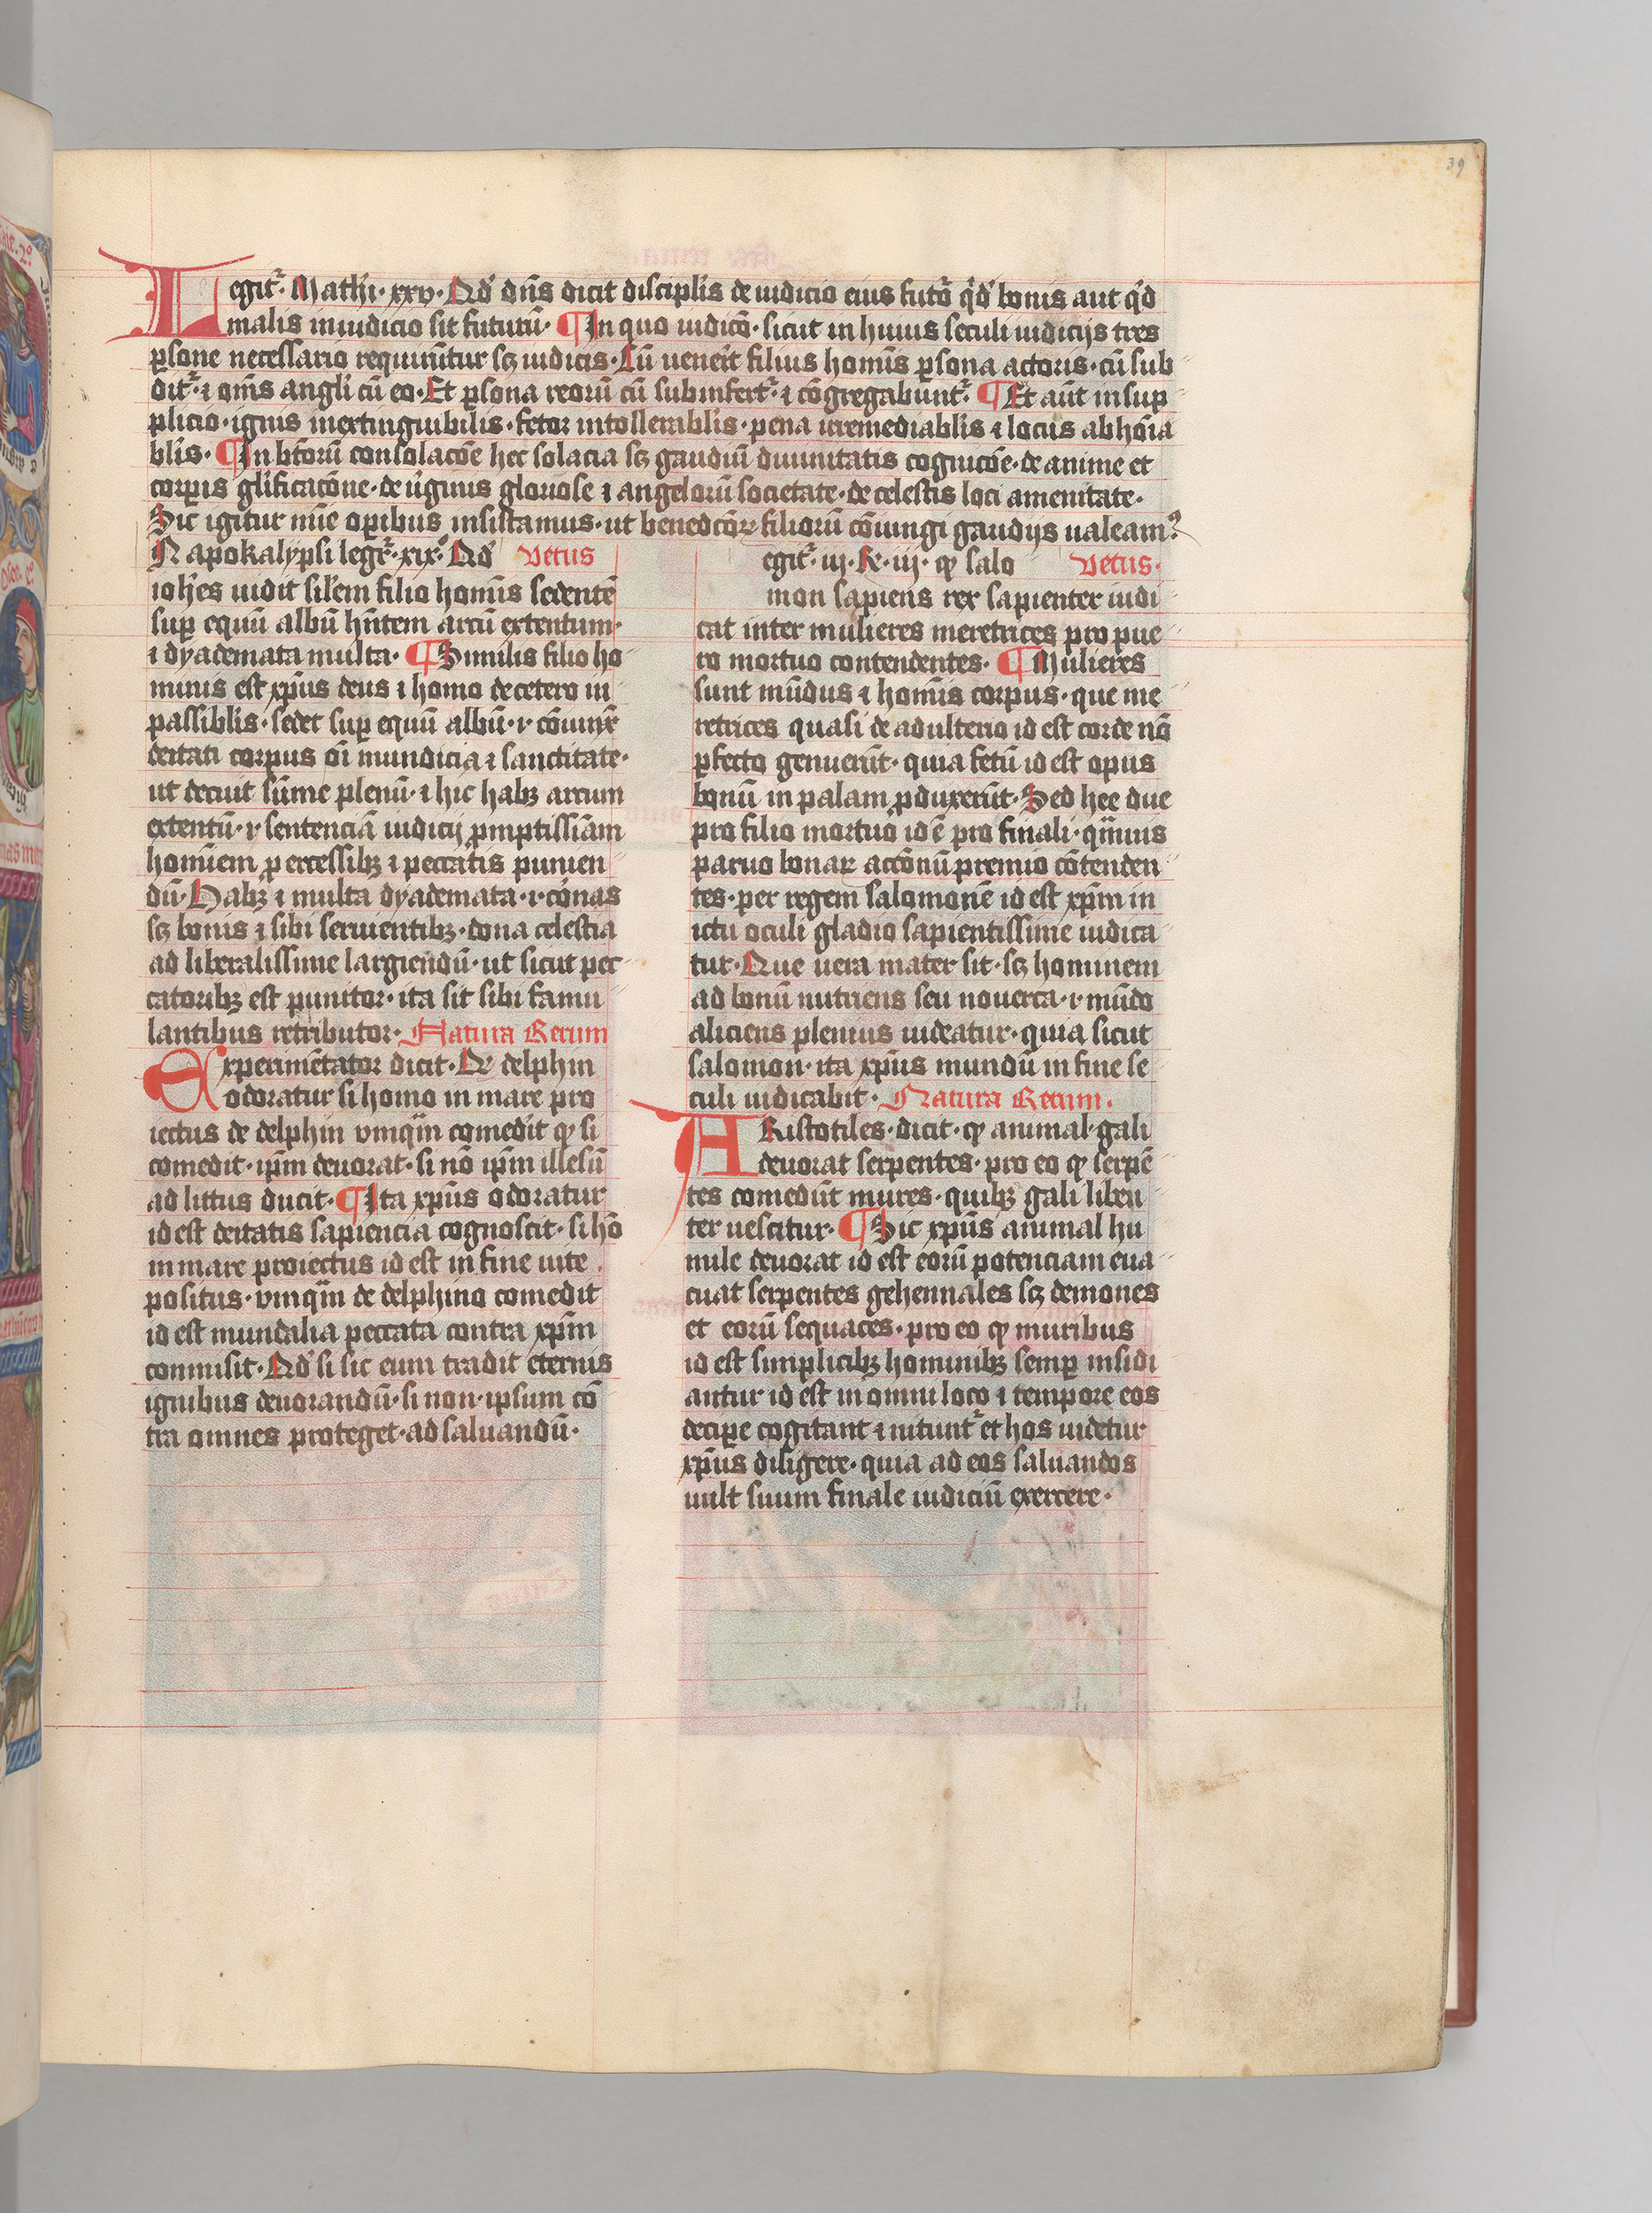 39
Legit᷑· Mathi· xxv· Qd̕ dn̄s dicit discipl̄is de iudicio eius futō q̇d̕ bonis aut q̇d
malis in iudicio sit futurū· ¶ In quo iudicō· sicut in huius seculi iudicijs tres
ꝑsone necessario requirūtur sꝫ iudicis· Cū uen̄eit filius homīs ꝑsona actoris· cū sub
dit᷑· ⁊ om̄s angl̄i cū eo· Et ꝑsona reorū cū subinfert᷑· ⁊ cōgregabunt᷑· ¶ Et aūt in sup
plicio· ignis inextinguibilis· fetor intollerabl̄is· pena irremediabl̄is ⁊ locus abhoīa
bl̄is· ¶ In bt̄orū consolacōe hec solacia sꝫ gaudiū diuinitatis cognicōe· de anime et
corꝑis gl̄ificacōne· de ùginis gloriose ⁊ angelorū societate· de celestis loci amenitate·
Sic igitur mīe oꝑibus insistamus· ut benedcōꝝ filiorū cōiungi gaudijs ualeam᷒
N apokalypsi legr᷑· xix̊· Qd̕ Vetus
ioh̄es uidit sil̄em filio homīs sedentē
suꝑ equū albū hn̄tem arcū extentum·
⁊ dyademata multa· ¶ Similis filio ho
minis est xp̄us deus ⁊ homo de cetero in
passibl̄is· sedet suꝑ equū albū· ı· cōiunx̄
deitati corpus oī mundicia ⁊ sanctitate·
ut decuit sūme plenū· ⁊ hic habꝫ arcum
extentū· ı· sentenciā iudicij ꝓmptissīam
homīem ꝓ excessibꝫ ⁊ pecc̄atis punien
dū· Habꝫ ⁊ multa dyademata· ı· cōnas
sꝫ bonis ⁊ sibi seruientibꝫ· dona celestia
ad liberalissime largiendū· ut sicut pec
catoribꝫ est punitor· ita sit sibi famu
lantibus retributor· Natura Rerum
Experimētator dicit· Qd̕ delphin
odoratur si homo in mare pro
iectus de delphin vmqᷓm comedit ꝙ si
comedit· ipm̄ deuorat· si nō ipm̄ illesū
ad littus ducit· ¶ Ita xp̄us odoratur
id est deitatis sapiencia cognoscit· si hō
in mare proiectus id est in fine uite
positus· vmqᷓm de delphino comedit
id est mundalia peccata contra xp̄m
commisit· Qd̕ si sic eum tradit eternis
ignibus deuorandū· si non· ipsum cō
tra omnes proteget· ad saluandū·
egit᷑· iij· R̄e· iij· ꝙ salo Vetus·
mon sapiens rex sapienter iudi
cat inter mulieres meretrices pro pue
ro mortuo contendentes· ¶ Mulieres
sunt mūdus ⁊ homīs corpus· que me
retrices quasi de adulterio id est corde nō
ꝑfecto genuerūt· quia fetū id est opus
bonū in palam ꝓduxerūt· Sed hee due
pro filio mortuo id ē pro finali· qᷓmuis
paruo bonaꝝ accōnū premio cōtenden
tes· per regem salomonē id est xp̄m in
ictu oculi gladio sapientissime iudica
tur· Que uera mater sit· sꝫ hominem
ad bonū nutriens seu nouerca· ı· mūdo
aliciens plenius uideatur· quia sicut
salomon· ita xp̄us mundū in fine se
culi iudicabit· Natura Rerum·
ARistotiles· dicit· ꝙ animal· gali
deuorat serpentes· pro eo ꝙ serpē
tes comedūt mures· quibꝫ gali liben
ter uescitur· ¶ Sic xp̄us animal hu
mile deuorat id est eorū potenciam eua
cuat serpentes gehennales sꝫ demones
et eorū sequaces· pro eo ꝙ muribus
id est simplicibꝫ hominibꝫ semꝑ insidi
antur id est in omni loco ⁊ tempore eos
deciꝑe cogitant ⁊ nitunt᷑ et hos uidetur
xp̄us diligere· quia ad eos saluandos
uult suum finale iudiciū exercere·